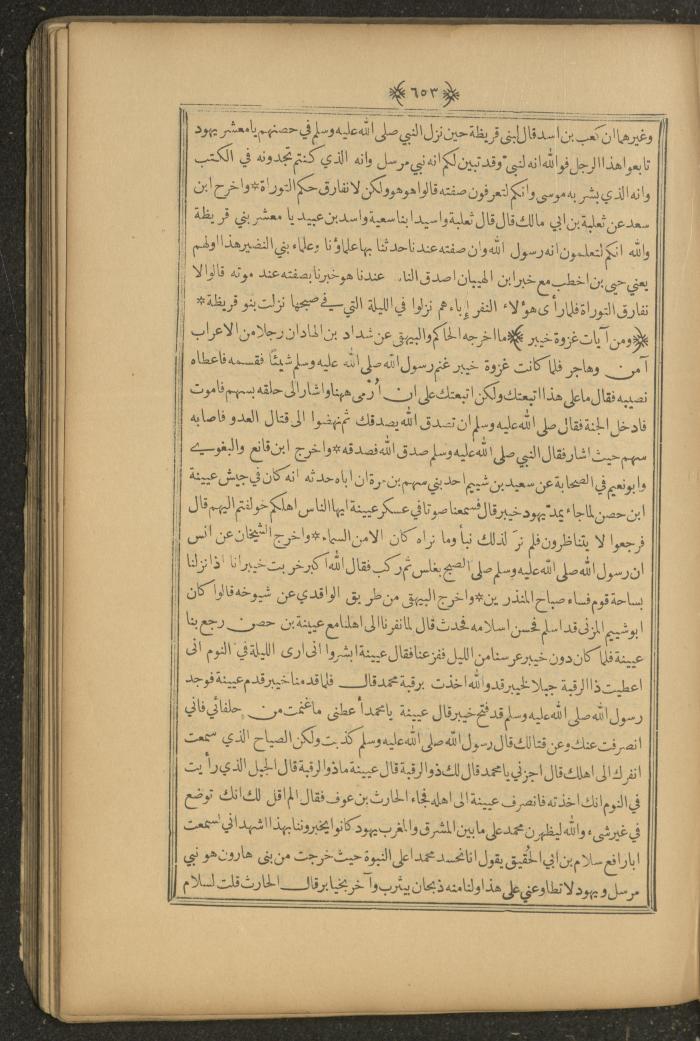 ﴿٦٥٣﴾
وغيرها ان كعب بن اسد قال لبنى قريظة حين نزل النبي صلى الله عليه وسلم في حصنهم يا معشر يهود
تابعوا هذا الرجل فوالله انه لنبي وقد تبين لكم انه نبي مرسل وانه الذي كنتم تجدونه في الكتب
وانه الذي بشر به موسى وانكم لتعرفون صفته قالوا هو هو ولكن لا نفارق حكم التوراة * واخرج ابن
سعد عن ثعلبة بن ابي مالك قال قال ثعلبة واسيد ابنا سعية واسد بن عبيد يا معشر بني قريظة
والله انكم لتعلمون انه رسول الله وان صفته عندنا حدثنا بها علماؤنا وعلماء بني النضير هذا اولهم
يعني حيى بن اخطب مع خبر ابن الهيبان اصدق الناس عندنا هو خبرنا بصفته عند موته قالوا لا
نفارق التوراة فلما رأى هؤلاء النفر إباءهم نزلوا في الليلة التي في صبحها نزلت بنو قريظة *
﴿ ومن آيات غزوة خيبر ﴾ ما اخرجه الحاكم والبيهقي عن شداد بن الهاد ان رجلا من الاعراب
آمن وهاجر فلما كانت غزوة خيبر غنم رسول الله صلى الله عليه وسلم شيئًا فقسمه فاعطاه
نصيبه فقال ما على هذا اتبعتك ولكن اتبعتك على ان أرمى ههنا واشار الى حلقه بسهم فاموت
فادخل الجنة فقال صلى الله عليه وسلم ان تصدق الله يصدقك ثم نهضوا الى قتال العدو فاصابه
سهم حيث اشار فقال النبي صلى الله عليه وسلم صدق الله فصدقه * واخرج ابن قانع والبغوي
وابو نعيم في الصحابة عن سعيد بن شييم احد بني سهم بن مرة ان اباه حدثه انه كان في جيش عيينة
ابن حصن لما جاء يمد يهود خيبر قال فسمعنا صوتا في عسكر عيينة ايها الناس اهلكم خولفتم اليهم قال
فرجعوا لا يتناظرون فلم نر لذلك نبأ وما نراه كان الا من السماء * واخرج الشيخان عن انس
ان رسول الله صلى الله عليه وسلم صلى الصبح بغلس ثم ركب فقال الله اكبر خربت خيبر انا اذا نزلنا
بساحة قوم فساء صباح المنذرين * واخرج البيهقي من طريق الواقدي عن شيوخه قالوا كان
ابو شييم المزنى قد اسلم فحسن اسلامه فحدث قال لما نفرنا الى اهلنا مع عيينة بن حصن رجع بنا
عيينة فلما كان دون خيبر عرسنا من الليل ففزعنا فقال عيينة ابشروا انى ارى الليلة في النوم انى
اعطيت ذا الرقبة جبلا لخيبر قد والله اخذت برقبة محمد قال فلما قدمنا خيبر قدم عيينة فوجد
رسول الله صلى الله عليه وسلم قد فتح خيبر قال عيينة يا محمد أعطنى ما غنمت من حلفائي فاني
انصرفت عنك وعن قتالك قال رسول الله صلى الله عليه وسلم كذبت ولكن الصياح الذي سمعت
انفرك الى اهلك قال اجزني يا محمد قال لك ذو الرقبة قال عيينة ما ذو الرقبة قال الجبل الذي رأيت
في النوم انك اخذته فانصرف عيينة الى اهله فجاء الحارث بن عوف فقال الم اقل لك انك توضع
في غير شيء والله ليظهرن محمد على ما بين المشرق والمغرب يهود كانوا يخبروننا بهذا اشهد اني لسمعت
ابا رافع سلام بن ابي الحُقيق يقول انا نحسد محمدا على النبوة حيث خرجت من بنى هارون هو نبي
مرسل ويهود لا تطاوعني على هذا ولنا منه ذبحان بيثرب وآخر بخيبر قال الحارث قلت لسلام